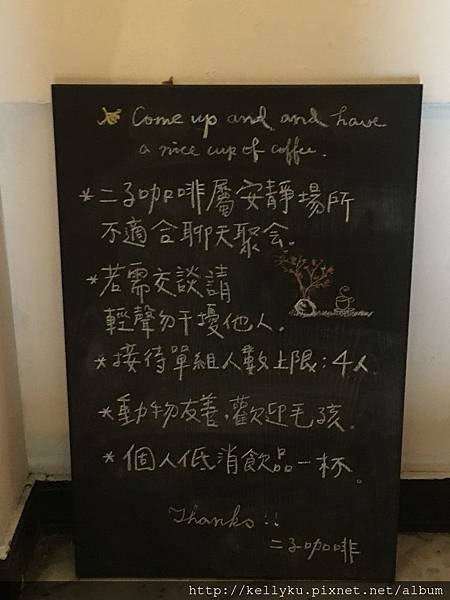 Come up and and have
a nice cup of coffee.
*二子咖啡屬安靜場所
不適合聊天聚会。
*若需交談請
輕聲勿干擾他人。
*接待單組人數上限:4人
*動物友善,歡迎毛孩。
*個人低消飲品一杯。
Thanks!!
二子咖啡
http://kellyku.pixnet.net/album